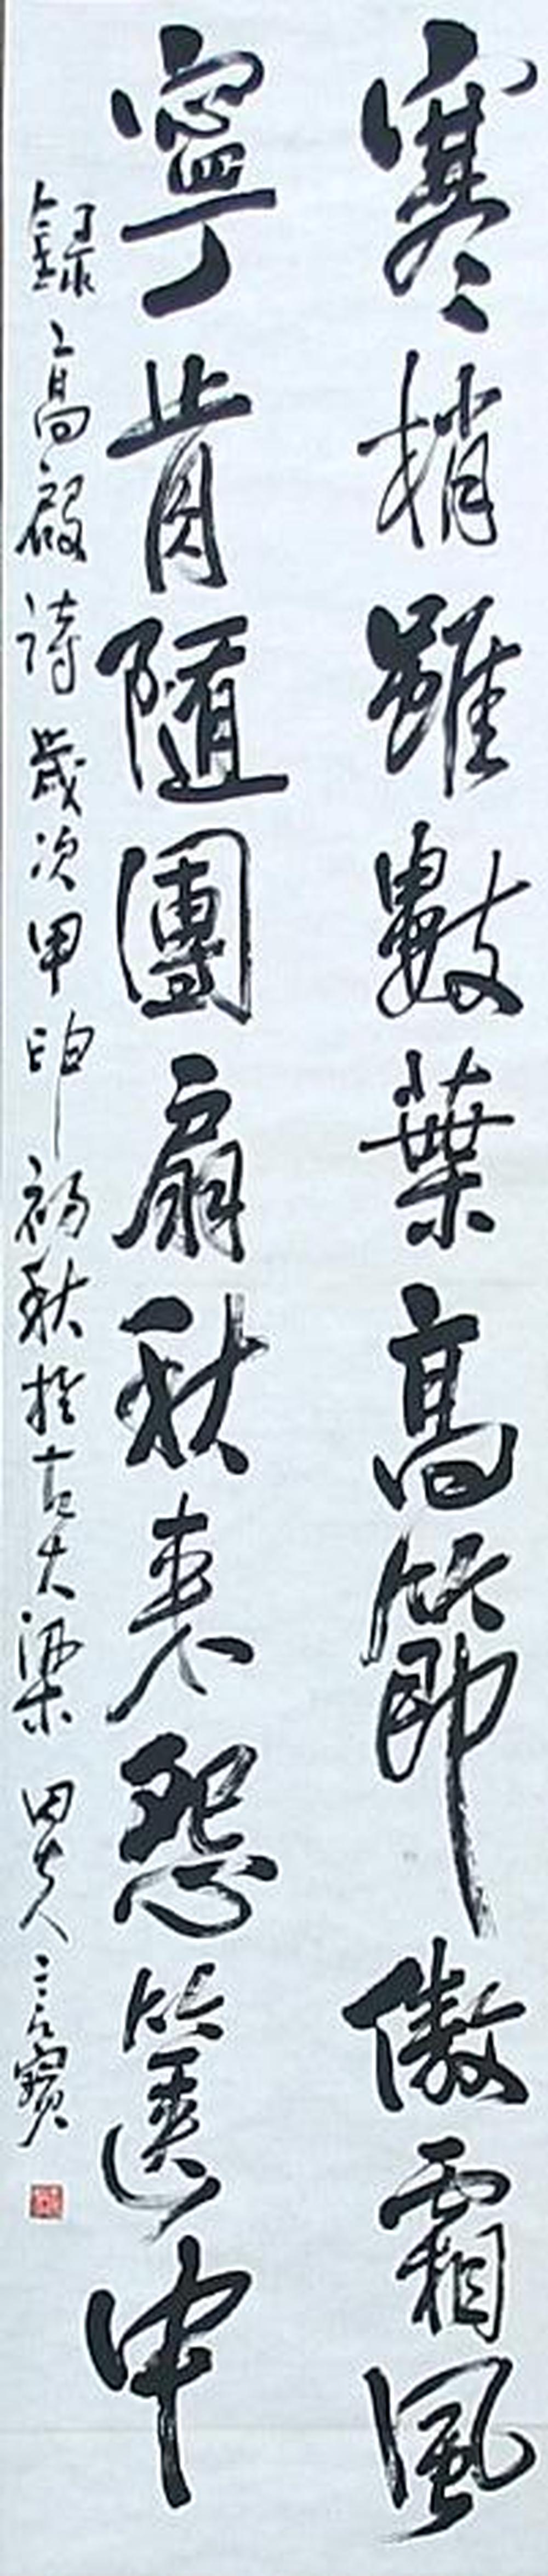 寒梢雖數葉高節傲霜風
寧肯隨團扇秋來怨篋中
錄高啟詩歲次甲申初秋於古大梁田夫言寶